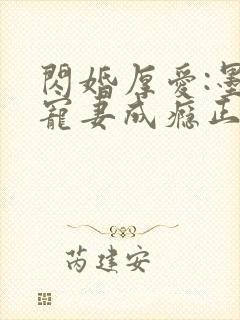 閃婚厚愛:墨
寵妻成癮正
芮建安